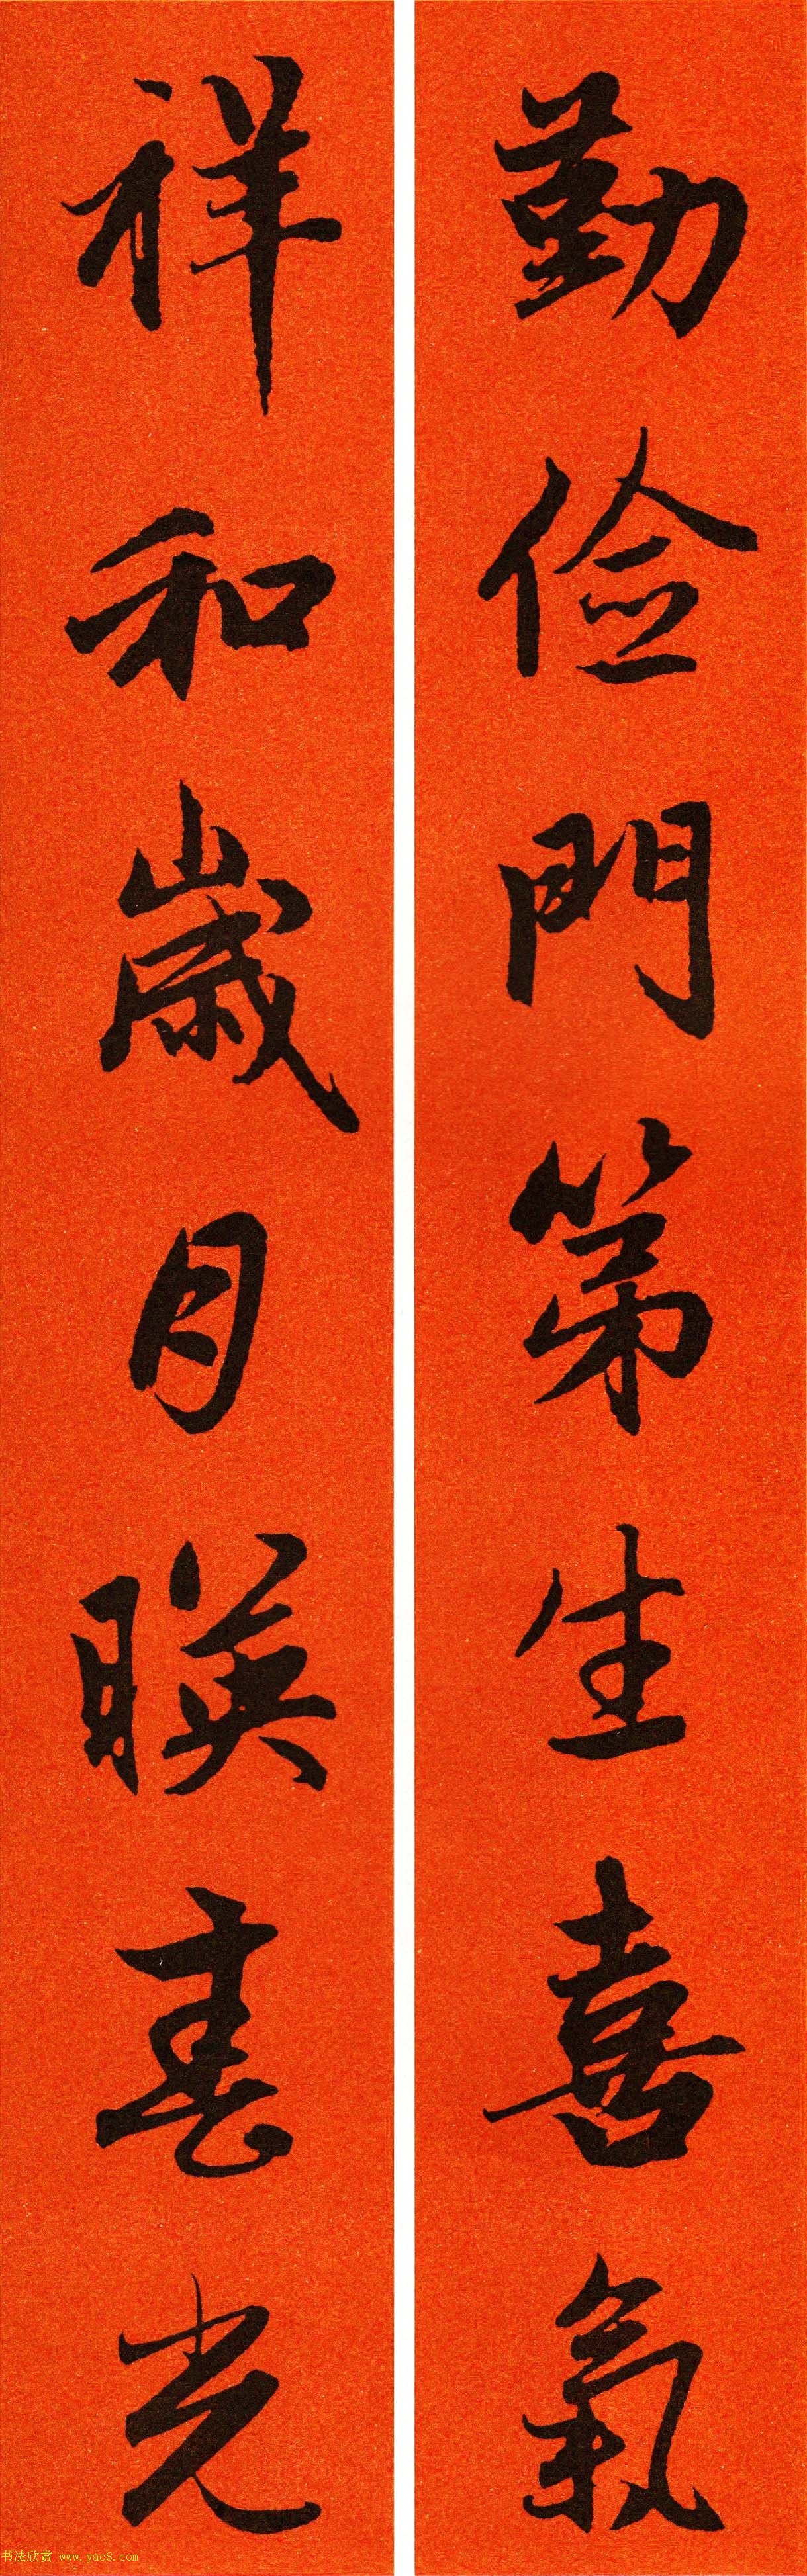 勤儉門第生喜氣
祥和歲月暎春光
书法欣赏 www.yac8.com